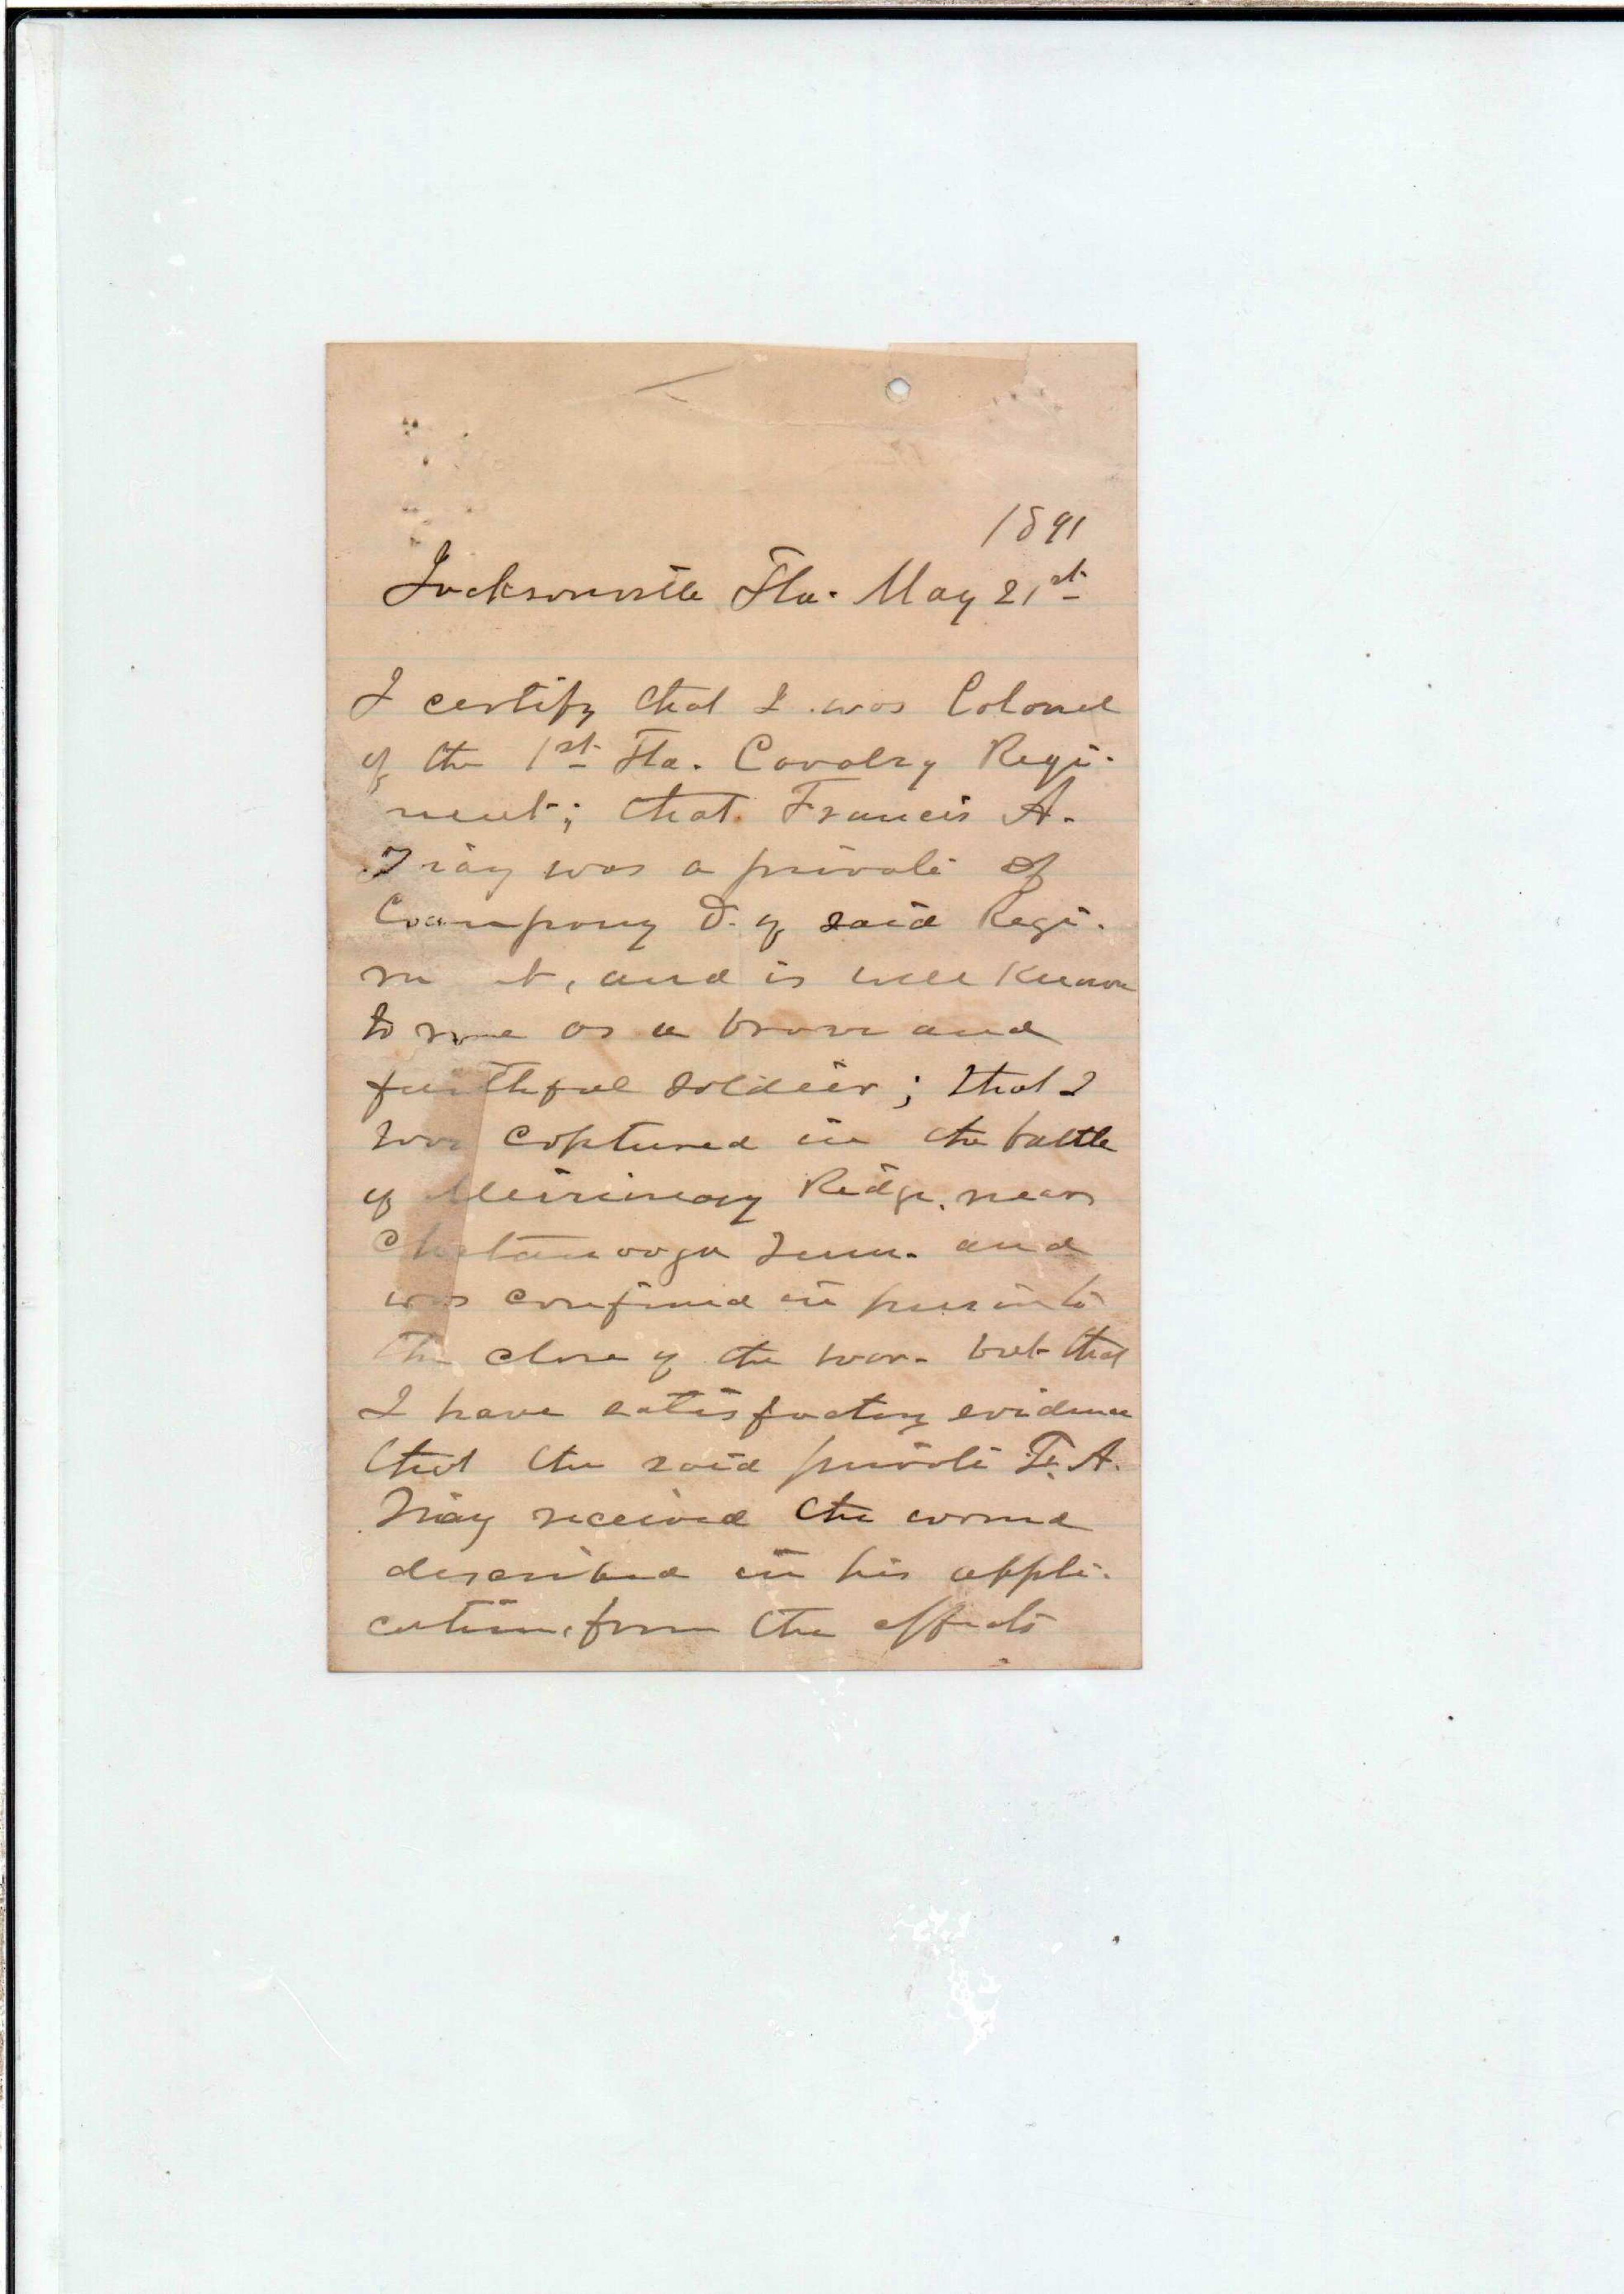 1891
Jacksonville Fla. May 21st
I certify that I was Colonel
of the 1st Fla. Cavalry Regi-
ment; that Francis A.
was a private of
Company D. of said Regi-
m t, and is well known
to me as a brave and
faithful soldier; that I
was captured in the battle
of Missionary Ridge, near
Chatanooga Tenn. and
was confined in prison to
the close of the war - but that
I have satisfactory evidence
that the said private F. A.
received the wound
described in his appli-
cation, from the effects